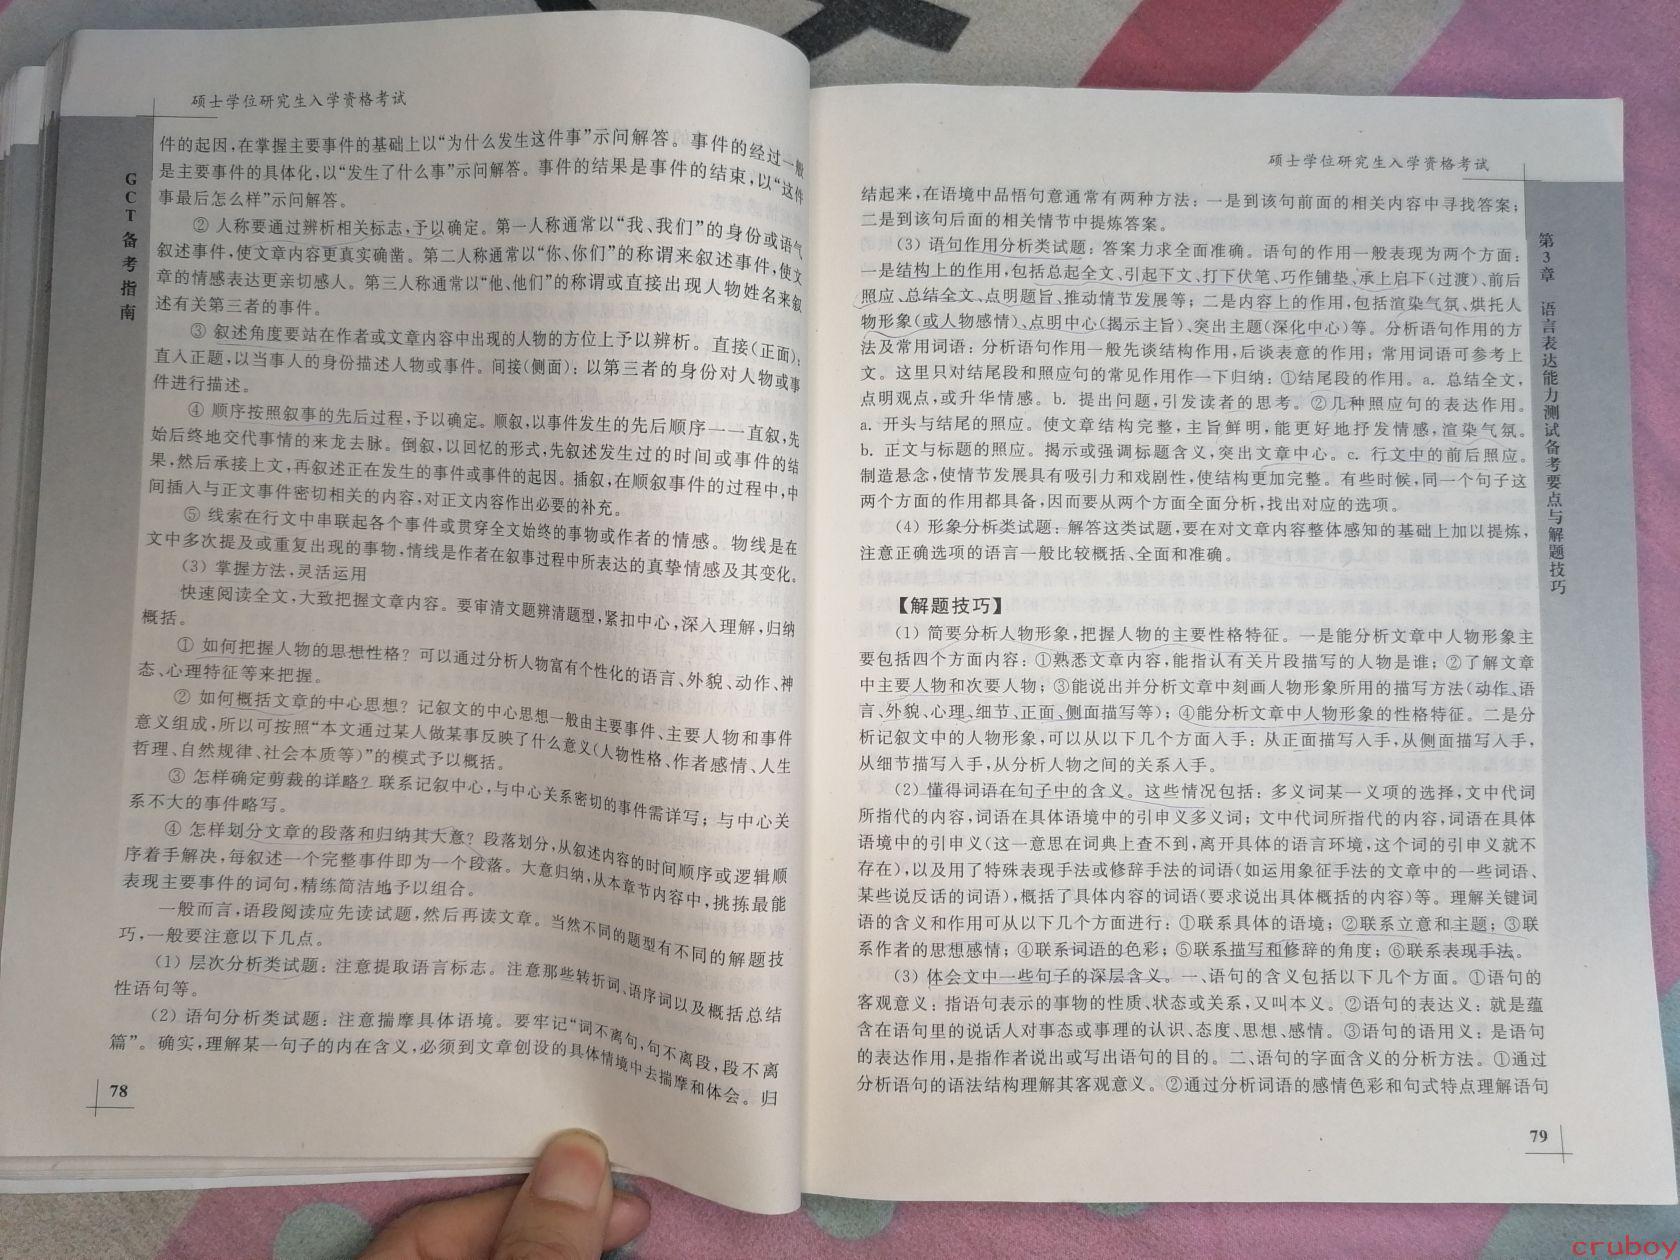 硕士学位研究生入学资格考试
GCT备考指南
件的起因,在掌握主要事件的基础上以“为什么发生这件事”示问解答。事件的经过一般
是主要事件的具体化,以“发生了什么事”示问解答。事件的结果是事件的结束,以“这件
事最后怎么样”示问解答。
② 人称要通过辨析相关标志,予以确定。第一人称通常以“我、我们”的身份或语气
叙述事件,使文章内容更真实确凿。第二人称通常以“你、你们”的称谓来叙述事件,使文
章的情感表达更亲切感人。第三人称通常以“他、他们”的称谓或直接出现人物姓名来叙
述有关第三者的事件。
③ 叙述角度要站在作者或文章内容中出现的人物的方位上予以辨析。直接(正面):
直入正题,以当事人的身份描述人物或事件。间接(侧面):以第三者的身份对人物或事
件进行描述。
④ 顺序按照叙事的先后过程,予以确定。顺叙,以事件发生的先后顺序一一直叙,先
始后终地交代事情的来龙去脉。倒叙,以回忆的形式,先叙述发生过的时间或事件的结
果,然后承接上文,再叙述正在发生的事件或事件的起因。插叙,在顺叙事件的过程中,中
间插入与正文事件密切相关的内容,对正文内容作出必要的补充。
⑤ 线索在行文中串联起各个事件或贯穿全文始终的事物或作者的情感。物线是在
文中多次提及或重复出现的事物,情线是作者在叙事过程中所表达的真挚情感及其变化。
(3) 掌握方法,灵活运用
快速阅读全文,大致把握文章内容。要审清文题辨清题型,紧扣中心,深入理解,归纳
概括。
① 如何把握人物的思想性格?可以通过分析人物富有个性化的语言、外貌、动作、神
态、心理特征等来把握。
② 如何概括文章的中心思想?记叙文的中心思想一般由主要事件、主要人物和事件
意义组成,所以可按照“本文通过某人做某事反映了什么意义(人物性格、作者感情、人生
哲理、自然规律、社会本质等)”的模式予以概括。
③ 怎样确定剪裁的详略?联系记叙中心,与中心关系密切的事件需详写;与中心关
系不大的事件略写。
④ 怎样划分文章的段落和归纳其大意?段落划分,从叙述内容的时间顺序或逻辑顺
序着手解决,每叙述一个完整事件即为一个段落。大意归纳,从本章节内容中,挑拣最能
表现主要事件的词句,精练简洁地予以组合。
一般而言,语段阅读应先读试题,然后再读文章。当然不同的题型有不同的解题技
巧,一般要注意以下几点。
(1) 层次分析类试题:注意提取语言标志。注意那些转折词、语序词以及概括总结
性语句等。
(2) 语句分析类试题:注意揣摩具体语境。要牢记“词不离句,句不离段,段不离
篇”。确实,理解某一句子的内在含义,必须到文章创设的具体情境中去揣摩和体会。归
78
硕士学位研究生入学资格考试
第3章 语言表达能力测试备考要点与解题技巧
结起来,在语境中品悟句意通常有两种方法:一是到该句前面的相关内容中寻找答案;
二是到该句后面的相关情节中提炼答案。
(3) 语句作用分析类试题:答案力求全面准确。语句的作用一般表现为两个方面:
一是结构上的作用,包括总起全文、引起下文、打下伏笔、巧作铺垫、承上启下(过渡)、前后
照应、总结全文、点明题旨、推动情节发展等;二是内容上的作用,包括渲染气氛、烘托人
物形象(或人物感情)、点明中心(揭示主旨)、突出主题(深化中心)等。分析语句作用的方
法及常用词语:分析语句作用一般先谈结构作用,后谈表意的作用;常用词语可参考上
文。这里只对结尾段和照应句的常见作用作一下归纳:①结尾段的作用。a. 总结全文,
点明观点,或升华情感。b. 提出问题,引发读者的思考。②几种照应句的表达作用。
a. 开头与结尾的照应。使文章结构完整,主旨鲜明,能更好地抒发情感,渲染气氛。
b. 正文与标题的照应。揭示或强调标题含义,突出文章中心。c. 行文中的前后照应。
制造悬念,使情节发展具有吸引力和戏剧性,使结构更加完整。有些时候,同一个句子这
两个方面的作用都具备,因而要从两个方面全面分析,找出对应的选项。
(4) 形象分析类试题:解答这类试题,要在对文章内容整体感知的基础上加以提炼,
注意正确选项的语言一般比较概括、全面和准确。
【解题技巧】
(1) 简要分析人物形象,把握人物的主要性格特征。一是能分析文章中人物形象主
要包括四个方面内容:①熟悉文章内容,能指认有关片段描写的人物是谁;②了解文章
中主要人物和次要人物;③能说出并分析文章中刻画人物形象所用的描写方法(动作、语
言、外貌、心理、细节、正面、侧面描写等);④能分析文章中人物形象的性格特征。二是分
析记叙文中的人物形象,可以从以下几个方面入手:从正面描写入手,从侧面描写入手,
从细节描写入手,从分析人物之间的关系入手。
(2) 懂得词语在句子中的含义。这些情况包括:多义词某一义项的选择,文中代词
所指代的内容,词语在具体语境中的引申义多义词;文中代词所指代的内容,词语在具体
语境中的引申义(这一意思在词典上查不到,离开具体的语言环境,这个词的引申义就不
存在),以及用了特殊表现手法或修辞手法的词语(如运用象征手法的文章中的一些词语、
某些说反话的词语),概括了具体内容的词语(要求说出具体概括的内容)等。理解关键词
语的含义和作用可从以下几个方面进行:①联系具体的语境;②联系立意和主题;③联
系作者的思想感情;④联系词语的色彩;⑤联系描写和修辞的角度;⑥联系表现手法。
(3) 体会文中一些句子的深层含义。一、语句的含义包括以下几个方面。①语句的
客观意义:指语句表示的事物的性质、状态或关系,又叫本义。②语句的表达义:就是蕴
含在语句里的说话人对事态或事理的认识、态度、思想、感情。③语句的语用义:是语句
的表达作用,是指作者说出或写出语句的目的。二、语句的字面含义的分析方法。①通过
分析语句的语法结构理解其客观意义。②通过分析词语的感情色彩和句式特点理解语句
79
cruboy